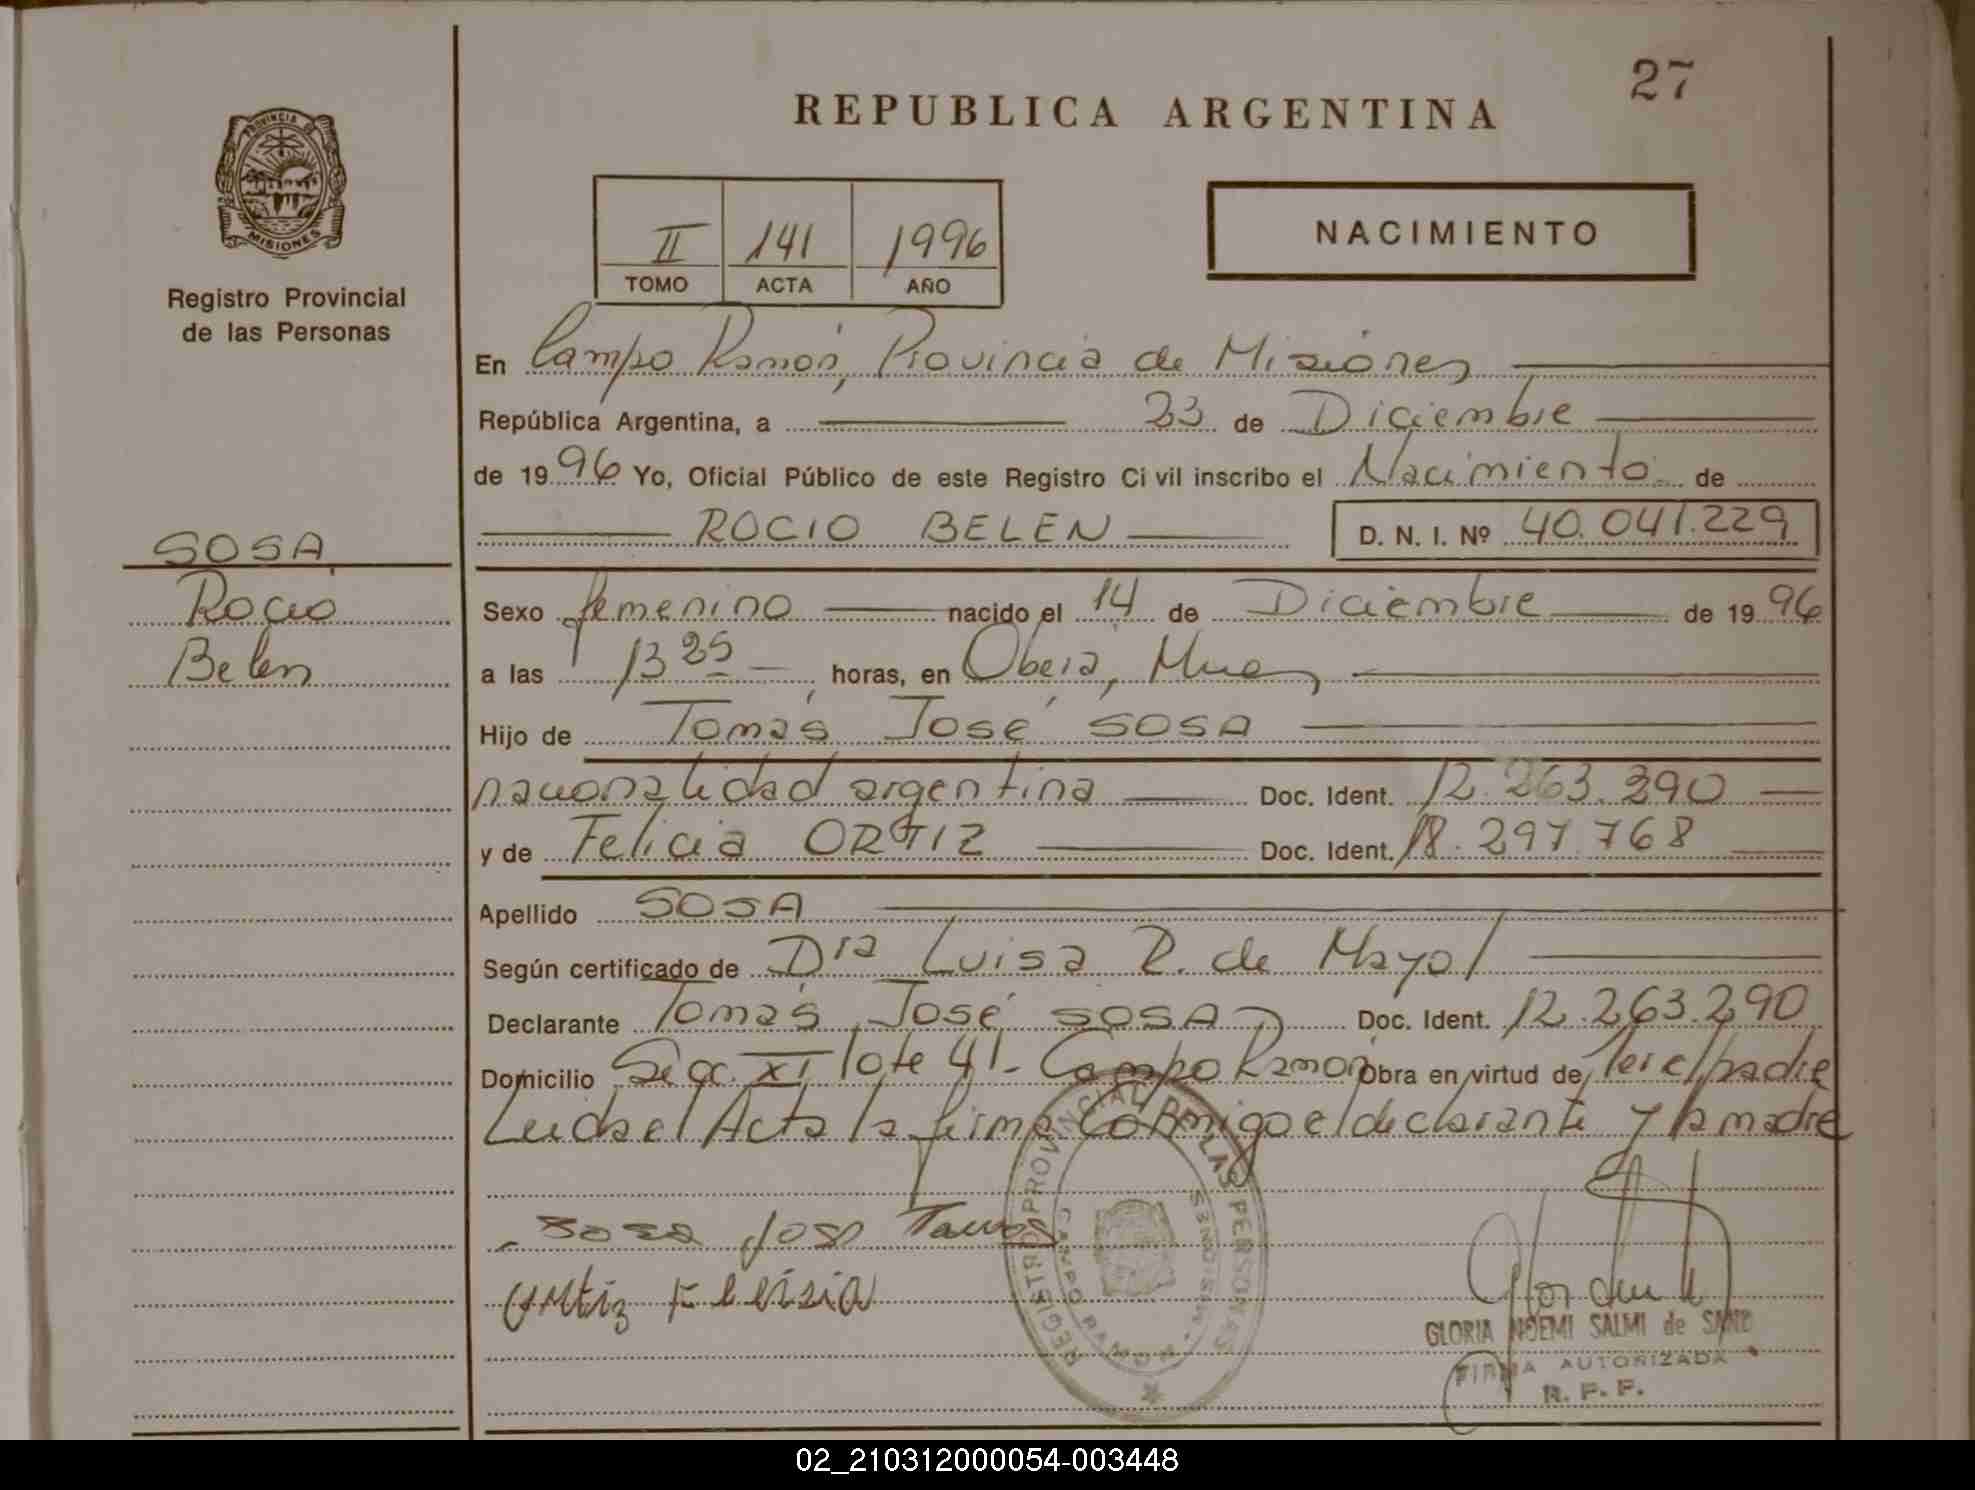 27
REPUBLICA ARGENTINA
PROVINCIA DE
MISIONES
II 141 1996
TOMO ACTA AÑO
NACIMIENTO
Registro Provincial
de las Personas
En Campo Ramón, Provincia de Misiones
República Argentina, a 23 de Diciembre
de 1996 Yo, Oficial Público de este Registro Civil inscribo el Nacimiento de
ROCIO BELEN D. N. I. Nº 40.041.229
SOSA
Rocio
Belen
Sexo femenino nacido el 14 de Diciembre de 1996
a las 13 25 horas, en Oberá, Mnes
Hijo de Tomás José SOSA
nacionalidad argentina Doc. Ident. 12.263.290
y de Felicia ORTIZ Doc. Ident. 18.297.768
Apellido SOSA
Según certificado de Dra Luisa R. de Mayol
Declarante Tomás José SOSA Doc. Ident. 12.263.290
Domicilio Secc. XI lote 41- Campo Ramón Obra en virtud de ser el padre
Leida el Acta la firma conmigo el declarante y la madre
Sosa José Tomas
Ortiz Felisia
REGISTRO PROVINCIAL DE LAS PERSONAS
CAMPO RAMON - MISIONES
GLORIA NOEMI SALMI de
FIRMA AUTORIZADA
R. P. P.
02_210312000054-003448